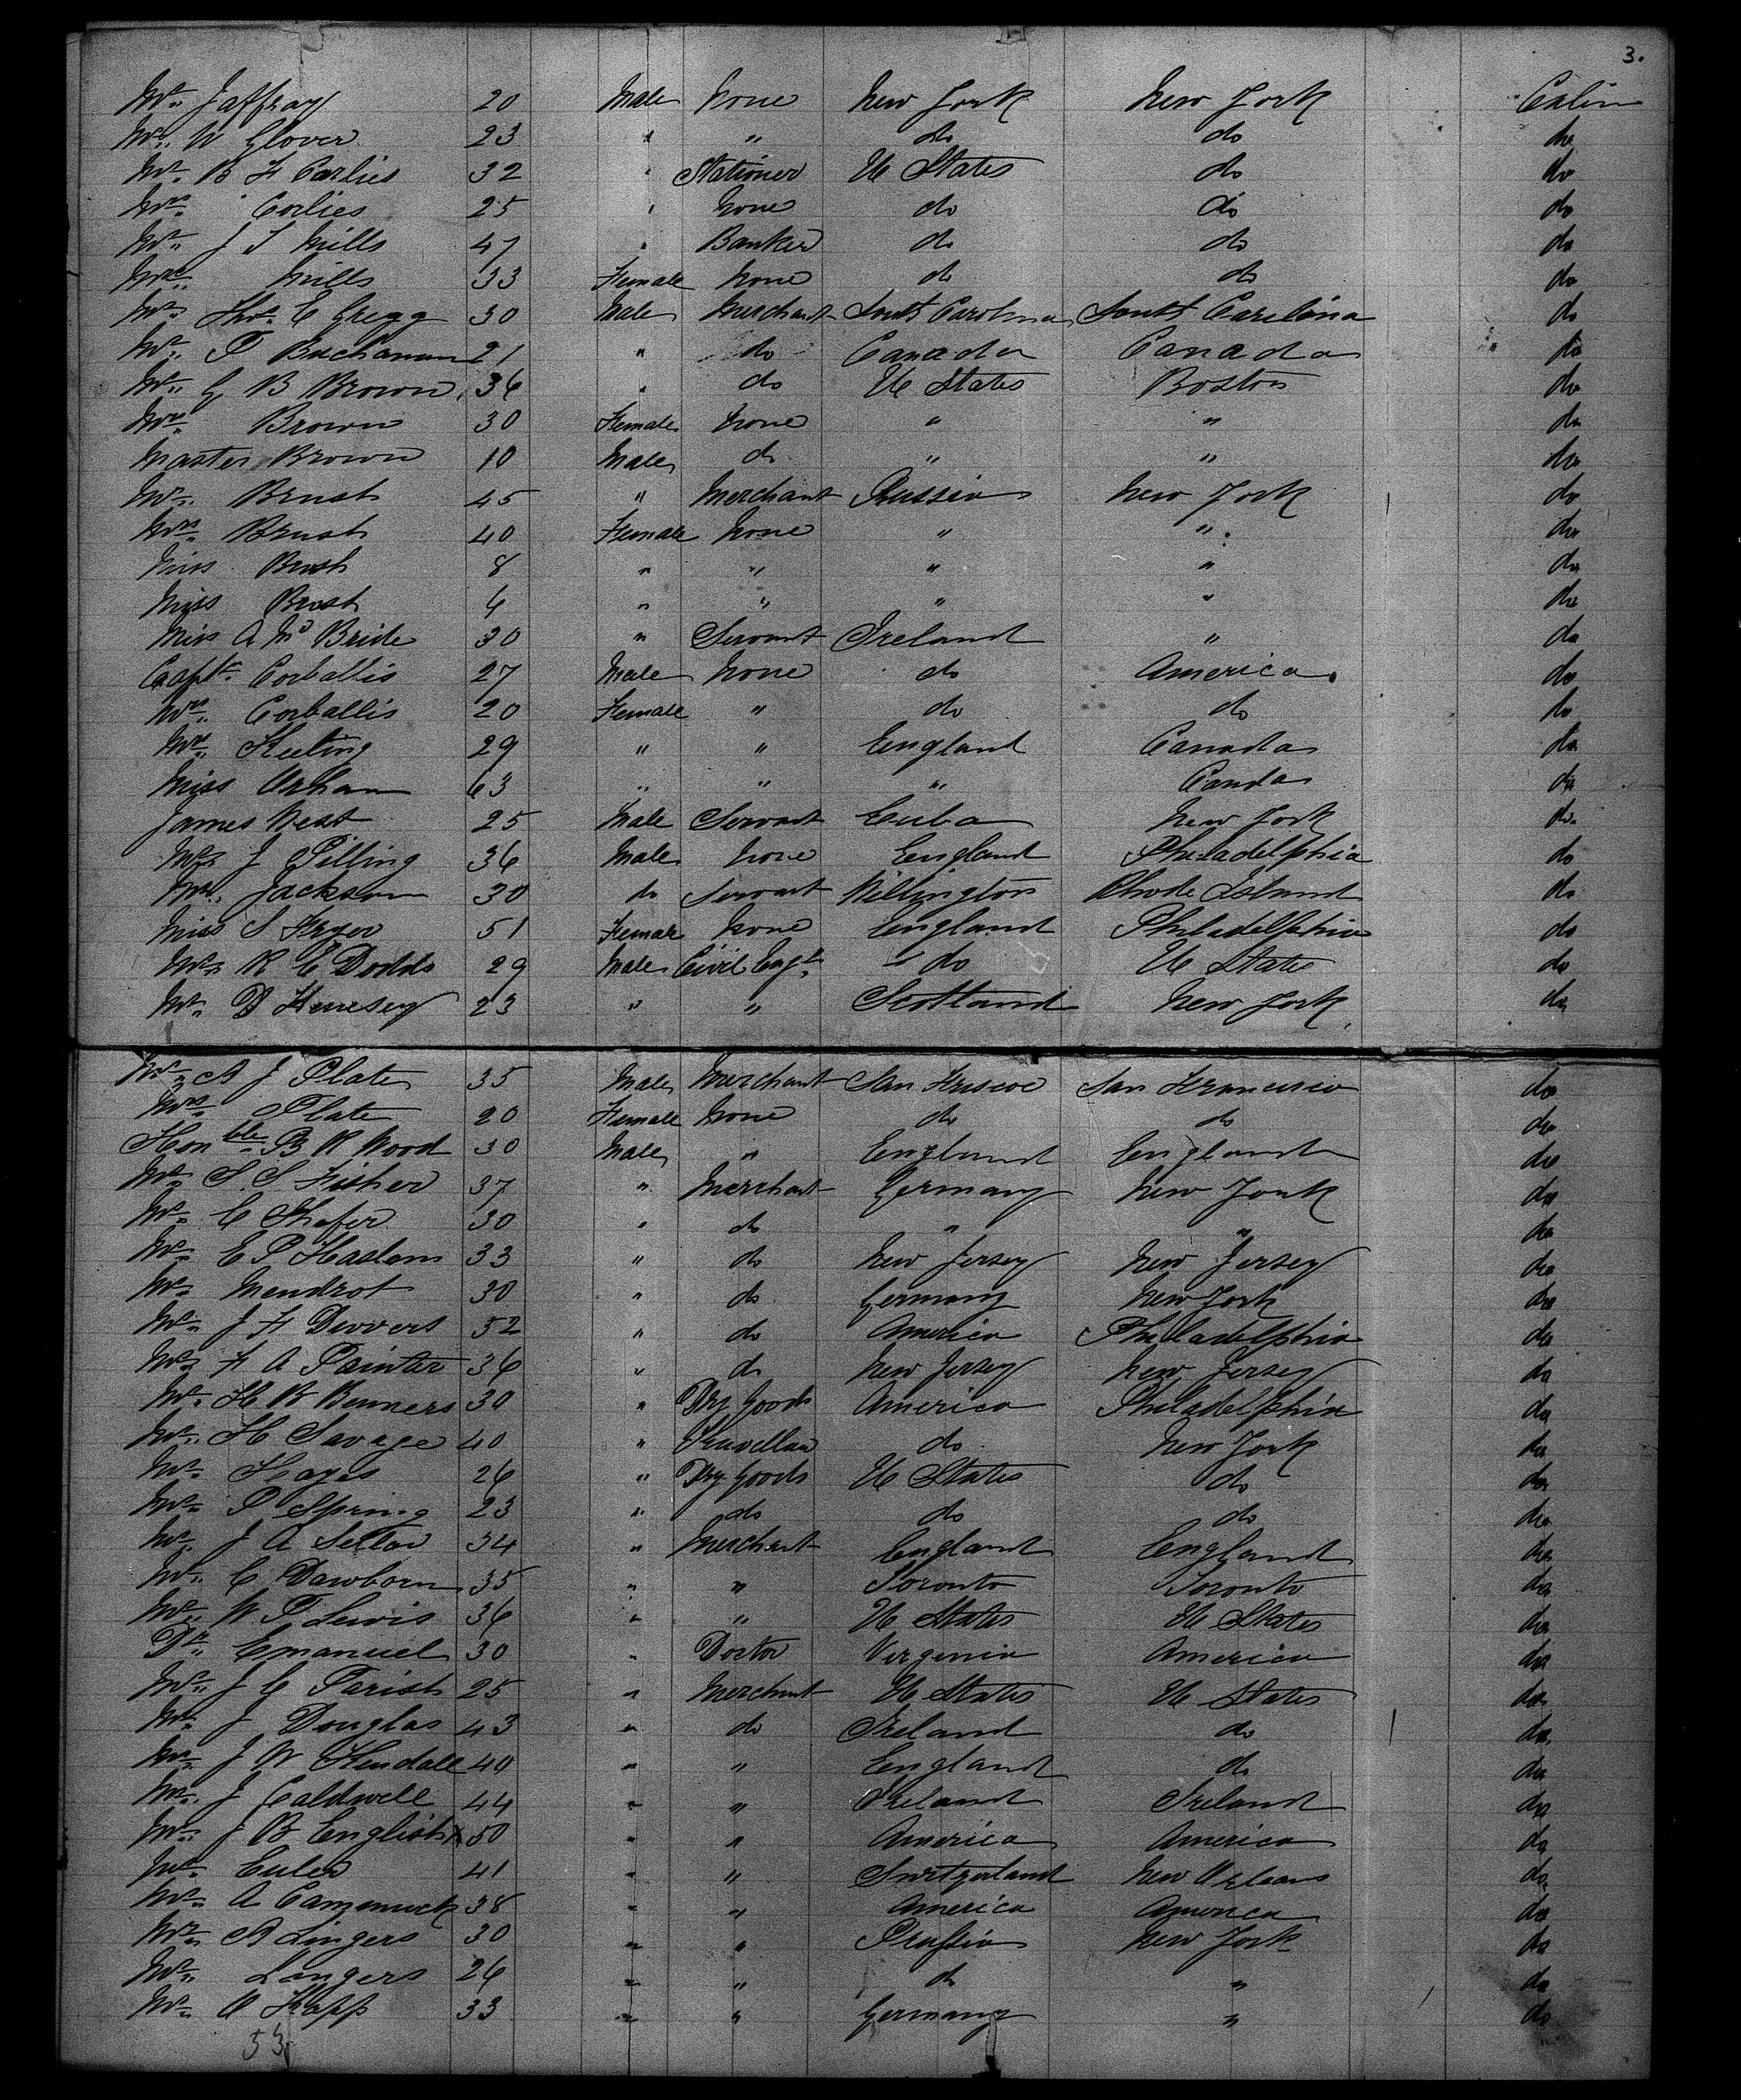 3.
Mr. Jaffray 20 Male None New York New York Cabin
Mr. W Glover 23 " " do do do
Mr. B F Corlies 32 " Stationer U States do do
Mrs. Corlies 25 " None do do do
Mr. J S Mills 47 " Banker do do do
Mrs. Mills 33 Female None do do do
Mr. Thos. E Gregg 30 Male Merchant South Carolina South Carolina do
Mr. P Buchanan 21 " do Canada Canada do
Mr. G B Brown 36 " do U States Boston do
Mrs. Brown 30 Female None " " do
Master Brown 10 Male do " " do
Mr. Brust 45 " Merchant Russia New York do
Mrs. Brust 40 Female None " " do
Miss Brust 8 " " " " do
Miss Brust 6 " " " " do
Miss A McBride 30 " Servant Ireland " do
Capt. Corballis 27 Male None do America do
Mrs. Corballis 20 Female " do do do
Mrs. Keeting 29 " " England Canada do
Miss 63 " " " Canda do
James West 25 Male Servant Cuba New York do
Mr. J Pilling 36 Male None England Philadelphia do
Mr. Jackson 30 do Servant Willington Rhode Island do
Miss S 51 Female None England Philadelphia do
Mr. R E Dodds 29 Male Civil Engr. do U States do
Mr. D 23 " " Scotland New York do
Mr. A J Plate 35 Male Merchant San Friscoe San Francisco do
Mrs. Plate 20 Female None do do do
Honble. B R Wood 30 Male " England England do
Mr. S. S Fisher 37 " Merchant Germany New York do
Mr. C Shafer 30 " do " " do
Mr. E P Haslam 33 " do New Jersey New Jersey do
Mr. Mendrot 30 " do Germany New York do
Mr. J H 52 " do America Philadelphia do
Mr. F A Painter 36 " do New Jersey New Jersey do
Mr. H R Benners 30 " Dry Goods America Philadelphia do
Mr. H Savage 40 " do New York do
Mr. Hayes 26 " Dry Goods U States do do
Mr. P Spring 23 " do do do do
Mr. J A Sellar 34 " Merchant England England do
Mr. C Dawborn 35 " " Toronto Toronto do
Mr. W P Lewis 36 " " U States U States do
Dr. Emanuel 30 " Doctor Virginia America do
Mr. J C Parish 25 " Merchant U States U States do
Mr. J Douglas 43 " do Ireland do do
Mr. J W Kendall 40 " " England do do
Mr. J Caldwell 44 " " Ireland Ireland do
Mr. J B English 50 " " America America do
Mr. Euler 41 " " Switzerland New Orleans do
Mr. A Cammuck 38 " " America America do
Mr. A Lingers 30 " " Prussia New York do
Mr. Langers 26 " " do " do
Mr. O Kapp 33 " " Germany " do
53